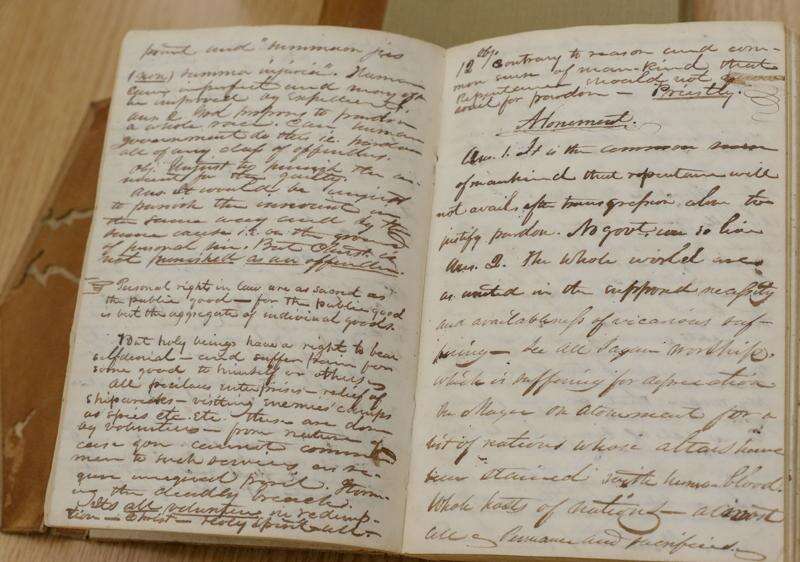 point and "summum jus
(non) summa injuria". Human
Govs. imperfect and may often
be improved by expedients.
Ans 2. God proposes to pardon
a whole race. Can human
government do this i.e. pardon
all of any class of offenders.
Obj. Unjust to punish the in-
nocent for the guilty.
Ans It would be unjust
to punish the innocent in
the same way and by the
same cause i.e. on the ground
of personal sin. But Christ is
not punished as an offender.
Personal right in law are as sacred as
the public good — for the public good
is but the aggregate of individual goods.
But holy beings have a right to bear
selfdenial — and suffer pain for
some good to himself or others
All perilous enterprises — relief of
shipwrecks — visiting enemies camps
as spies etc. etc. these are done
by volunteers — from nature of
case gov. cannot command
men to such services, as re-
quire unequivocal peril.
ing the deadly breach.
Its all volunteer in redemp-
tion — Christ — Holy Spirit — all —
12 Obj. Contrary to reason and com-
mon sense of mankind that
repentance should not
avail for pardon — Priestly.
Atonement.
Ans. 1. It is the common
of mankind that repentance will
not avail after transgression alone to
justify pardon. No govt. can so live
Ans. 2. The whole world are
as united in the supposed necessity
and availableness of vicarious suf-
fering — See all Pagan worship.
which is suffering for
or atonement for a
list of nations whose altars have
been stained with human blood.
Whole hosts of nations — almost
all — Romans and sacrificed.